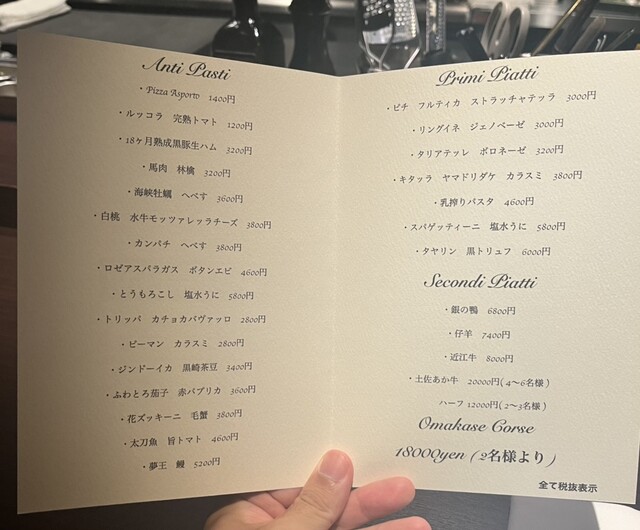 Anti Pasti
・Pizza Asporto 1400円
・ルッコラ 完熟トマト 1200円
・18ヶ月熟成黒豚生ハム 3200円
・馬肉 林檎 3200円
・海峡牡蠣 へべす 3600円
・白桃 水牛モッツァレッラチーズ 3800円
・カンパチ へべす 3800円
・ロゼアスパラガス ボタンエビ 4600円
・とうもろこし 塩水うに 5800円
・トリッパ カチョカバヴァッロ 2800円
・ピーマン カラスミ 2800円
・ジンドーイカ 黒崎茶豆 3400円
・ふわとろ茄子 赤パプリカ 3600円
・花ズッキーニ 毛蟹 3800円
・太刀魚 旨トマト 4600円
・夢王 鰻 5200円
Primi Piatti
・ピチ フルティカ ストラッチャテッラ 3000円
・リングイネ ジェノベーゼ 3000円
・タリアテッレ ボロネーゼ 3200円
・キタッラ ヤマドリダケ カラスミ 3800円
・乳搾りパスタ 4600円
・スパゲッティーニ 塩水うに 5800円
・タヤリン 黒トリュフ 6000円
Secondi Piatti
・銀の鴨 6800円
・仔羊 7400円
・近江牛 8000円
・土佐あか牛 20000円(4〜6名様)
ハーフ 12000円(2〜3名様)
Omakase Corse
18000yen (2名様より)
全て税抜表示